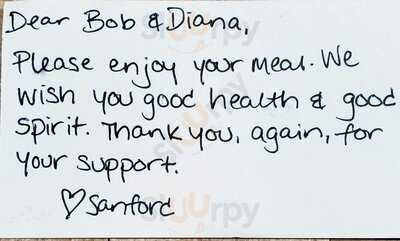 Dear Bob & Diana,
Please enjoy your meal. We
wish you good health & good
spirit. Thank you, again, for
your support.
♡ Sanford